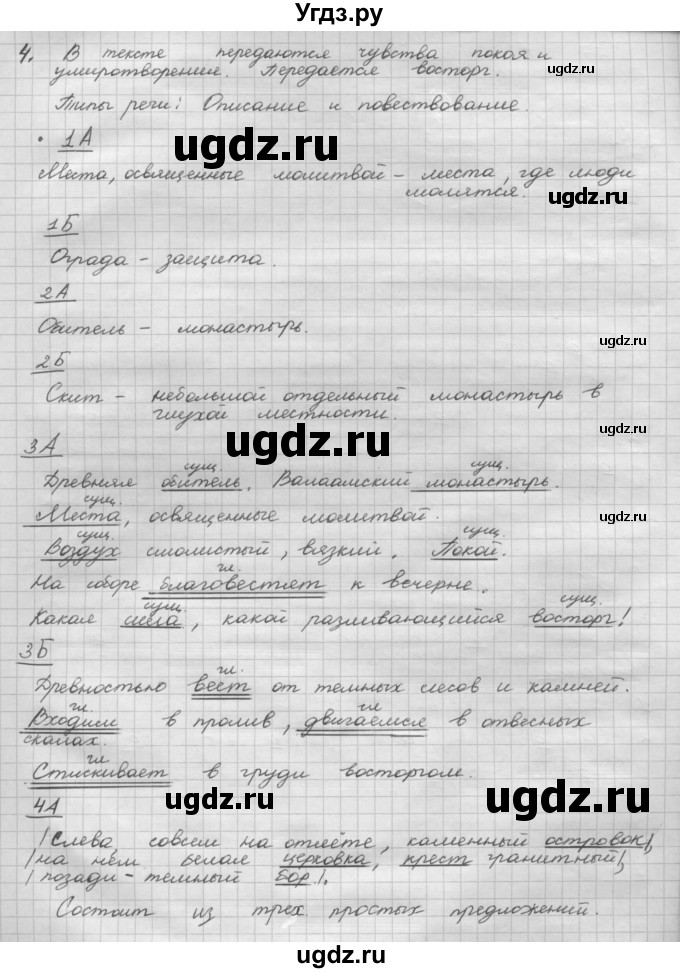 Угдз.ру
4. В тексте передаются чувства покоя и
умиротворения. Передается восторг.
ugdz.ru
Типы речи: Описание и повествование.
ugdz.ru
• 1А
ugdz.ru
Места, освященные молитвой – места, где люди
молятся.
ugdz.ru
1Б
Ограда – защита.
ugdz.ru
2А
Обитель – монастырь.
ugdz.ru
2Б
Скит – небольшой отдельный монастырь в
глухой местности.
ugdz.ru
3А
ugdz.ru
сущ. сущ.
Древняя обитель. Валаамский монастырь.
сущ.
Места, освященные молитвой.
ugdz.ru
сущ. сущ.
Воздух смолистый, вязкий. Покой.
гл.
На соборе благовестят к вечерне.
ugdz.ru
сущ. сущ.
Какая сила, какой разливающийся восторг!
3Б
гл.
Древностью веет от темных лесов и камней.
ugdz.ru
гл. гл
Входим в пролив, двигаемся в отвесных
скалах.
гл
Стискивает в груди восторгом.
ugdz.ru
ugdz.ru
4А
|Слева, совсем на отлёте, каменный островок|,
|на нем белая церковка, крест гранитный|,
|позади – темный бор|.
ugdz.ru
Состоит из трех простых предложений.
ugdz.ru
ugdz.ru